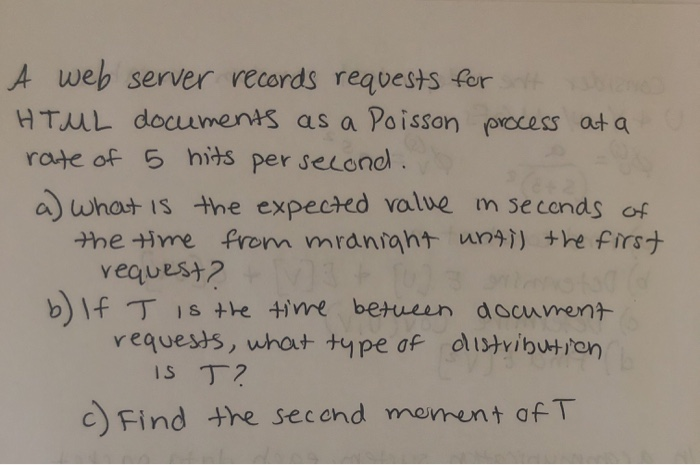 A web server records requests for
HTML documents as a Poisson process at a
rate of 5 hits per second.
a) what is the expected value in seconds of
the time from midnight until the first
request?
b) If T is the time between document
requests, what type of distribution
is T?
c) Find the second moment of T